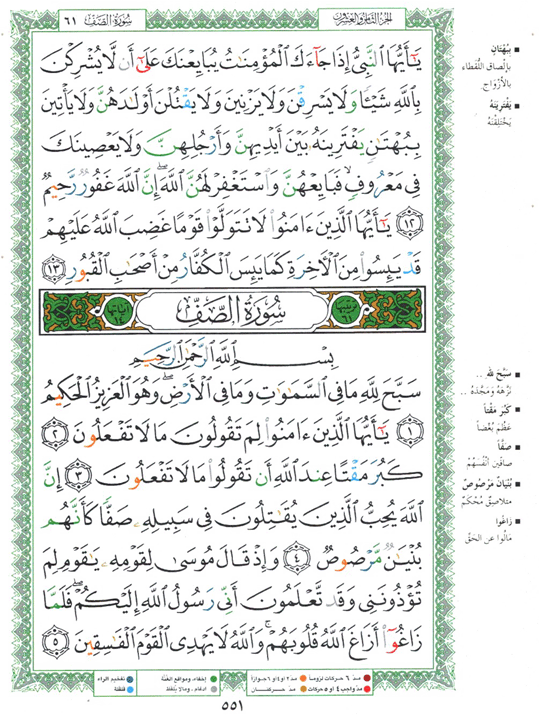 الجزء الثامن والعشرون
سُورَةُ الصَّفِّ ٦١
يَـٰٓأَيُّهَا ٱلنَّبِىُّ إِذَا جَآءَكَ ٱلْمُؤْمِنَـٰتُ يُبَايِعْنَكَ عَلَىٰٓ أَن لَّا يُشْرِكْنَ
بِٱللَّهِ شَيْـًٔا وَلَا يَسْرِقْنَ وَلَا يَزْنِينَ وَلَا يَقْتُلْنَ أَوْلَـٰدَهُنَّ وَلَا يَأْتِينَ
بِبُهْتَـٰنٍ يَفْتَرِينَهُۥ بَيْنَ أَيْدِيهِنَّ وَأَرْجُلِهِنَّ وَلَا يَعْصِينَكَ
فِى مَعْرُوفٍ فَبَايِعْهُنَّ وَٱسْتَغْفِرْ لَهُنَّ ٱللَّهَ إِنَّ ٱللَّهَ غَفُورٌ رَّحِيمٌ
١٢ يَـٰٓأَيُّهَا ٱلَّذِينَ ءَامَنُوا۟ لَا تَتَوَلَّوْا۟ قَوْمًا غَضِبَ ٱللَّهُ عَلَيْهِمْ
قَدْ يَئِسُوا۟ مِنَ ٱلْـَٔاخِرَةِ كَمَا يَئِسَ ٱلْكُفَّارُ مِنْ أَصْحَـٰبِ ٱلْقُبُورِ ١٣
سُورَةُ الصَّفِّ
بِسْمِ ٱللَّهِ ٱلرَّحْمَـٰنِ ٱلرَّحِيمِ
سَبَّحَ لِلَّهِ مَا فِى ٱلسَّمَـٰوَٰتِ وَمَا فِى ٱلْأَرْضِ وَهُوَ ٱلْعَزِيزُ ٱلْحَكِيمُ
١ يَـٰٓأَيُّهَا ٱلَّذِينَ ءَامَنُوا۟ لِمَ تَقُولُونَ مَا لَا تَفْعَلُونَ ٢
كَبُرَ مَقْتًا عِندَ ٱللَّهِ أَن تَقُولُوا۟ مَا لَا تَفْعَلُونَ ٣ إِنَّ
ٱللَّهَ يُحِبُّ ٱلَّذِينَ يُقَـٰتِلُونَ فِى سَبِيلِهِۦ صَفًّا كَأَنَّهُم
بُنْيَـٰنٌ مَّرْصُوصٌ ٤ وَإِذْ قَالَ مُوسَىٰ لِقَوْمِهِۦ يَـٰقَوْمِ لِمَ
تُؤْذُونَنِى وَقَد تَّعْلَمُونَ أَنِّى رَسُولُ ٱللَّهِ إِلَيْكُمْ فَلَمَّا
زَاغُوٓا۟ أَزَاغَ ٱللَّهُ قُلُوبَهُمْ وَٱللَّهُ لَا يَهْدِى ٱلْقَوْمَ ٱلْفَـٰسِقِينَ ٥
بِبُهْتَانٍ
بإلصاق اللُّقَطاء
بالأزواج
يَفْتَرِينَهُ
يَخْتَلِقْنَهُ
سَبَّحَ لله ..
نَزَّهَهُ وَمَجَّدَهُ ..
كَبُرَ مَقْتًا
عَظُمَ بُغْضاً
صَفًّا
صافّين أنفُسَهُمْ
بُنْيَانٌ مَرْصُوصٌ
مُتلاصِقٌ مُحْكَمٌ
زَاغُوا
مَالُوا عن الحَقِّ
مدّ ٦ حركات لزوماً
مدّ ٢ أو ٤ أو ٦ جوازاً
إخفاء، ومواقع الغُنّة
تفخيم الراء
مدّ واجب ٤ أو ٥ حركات
مدّ حركتان
إدغام، وما لا يُلفظ
قلقلة
٥٥١